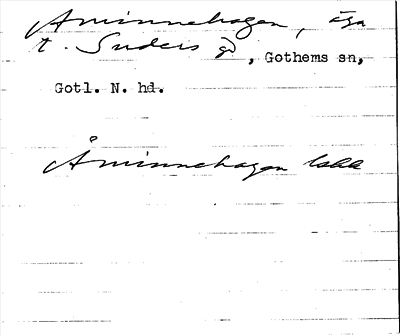 Åminnehagen, äga
t. Suders gd, Gothems sn,
Gotl. N. hd.
Åminnehagen